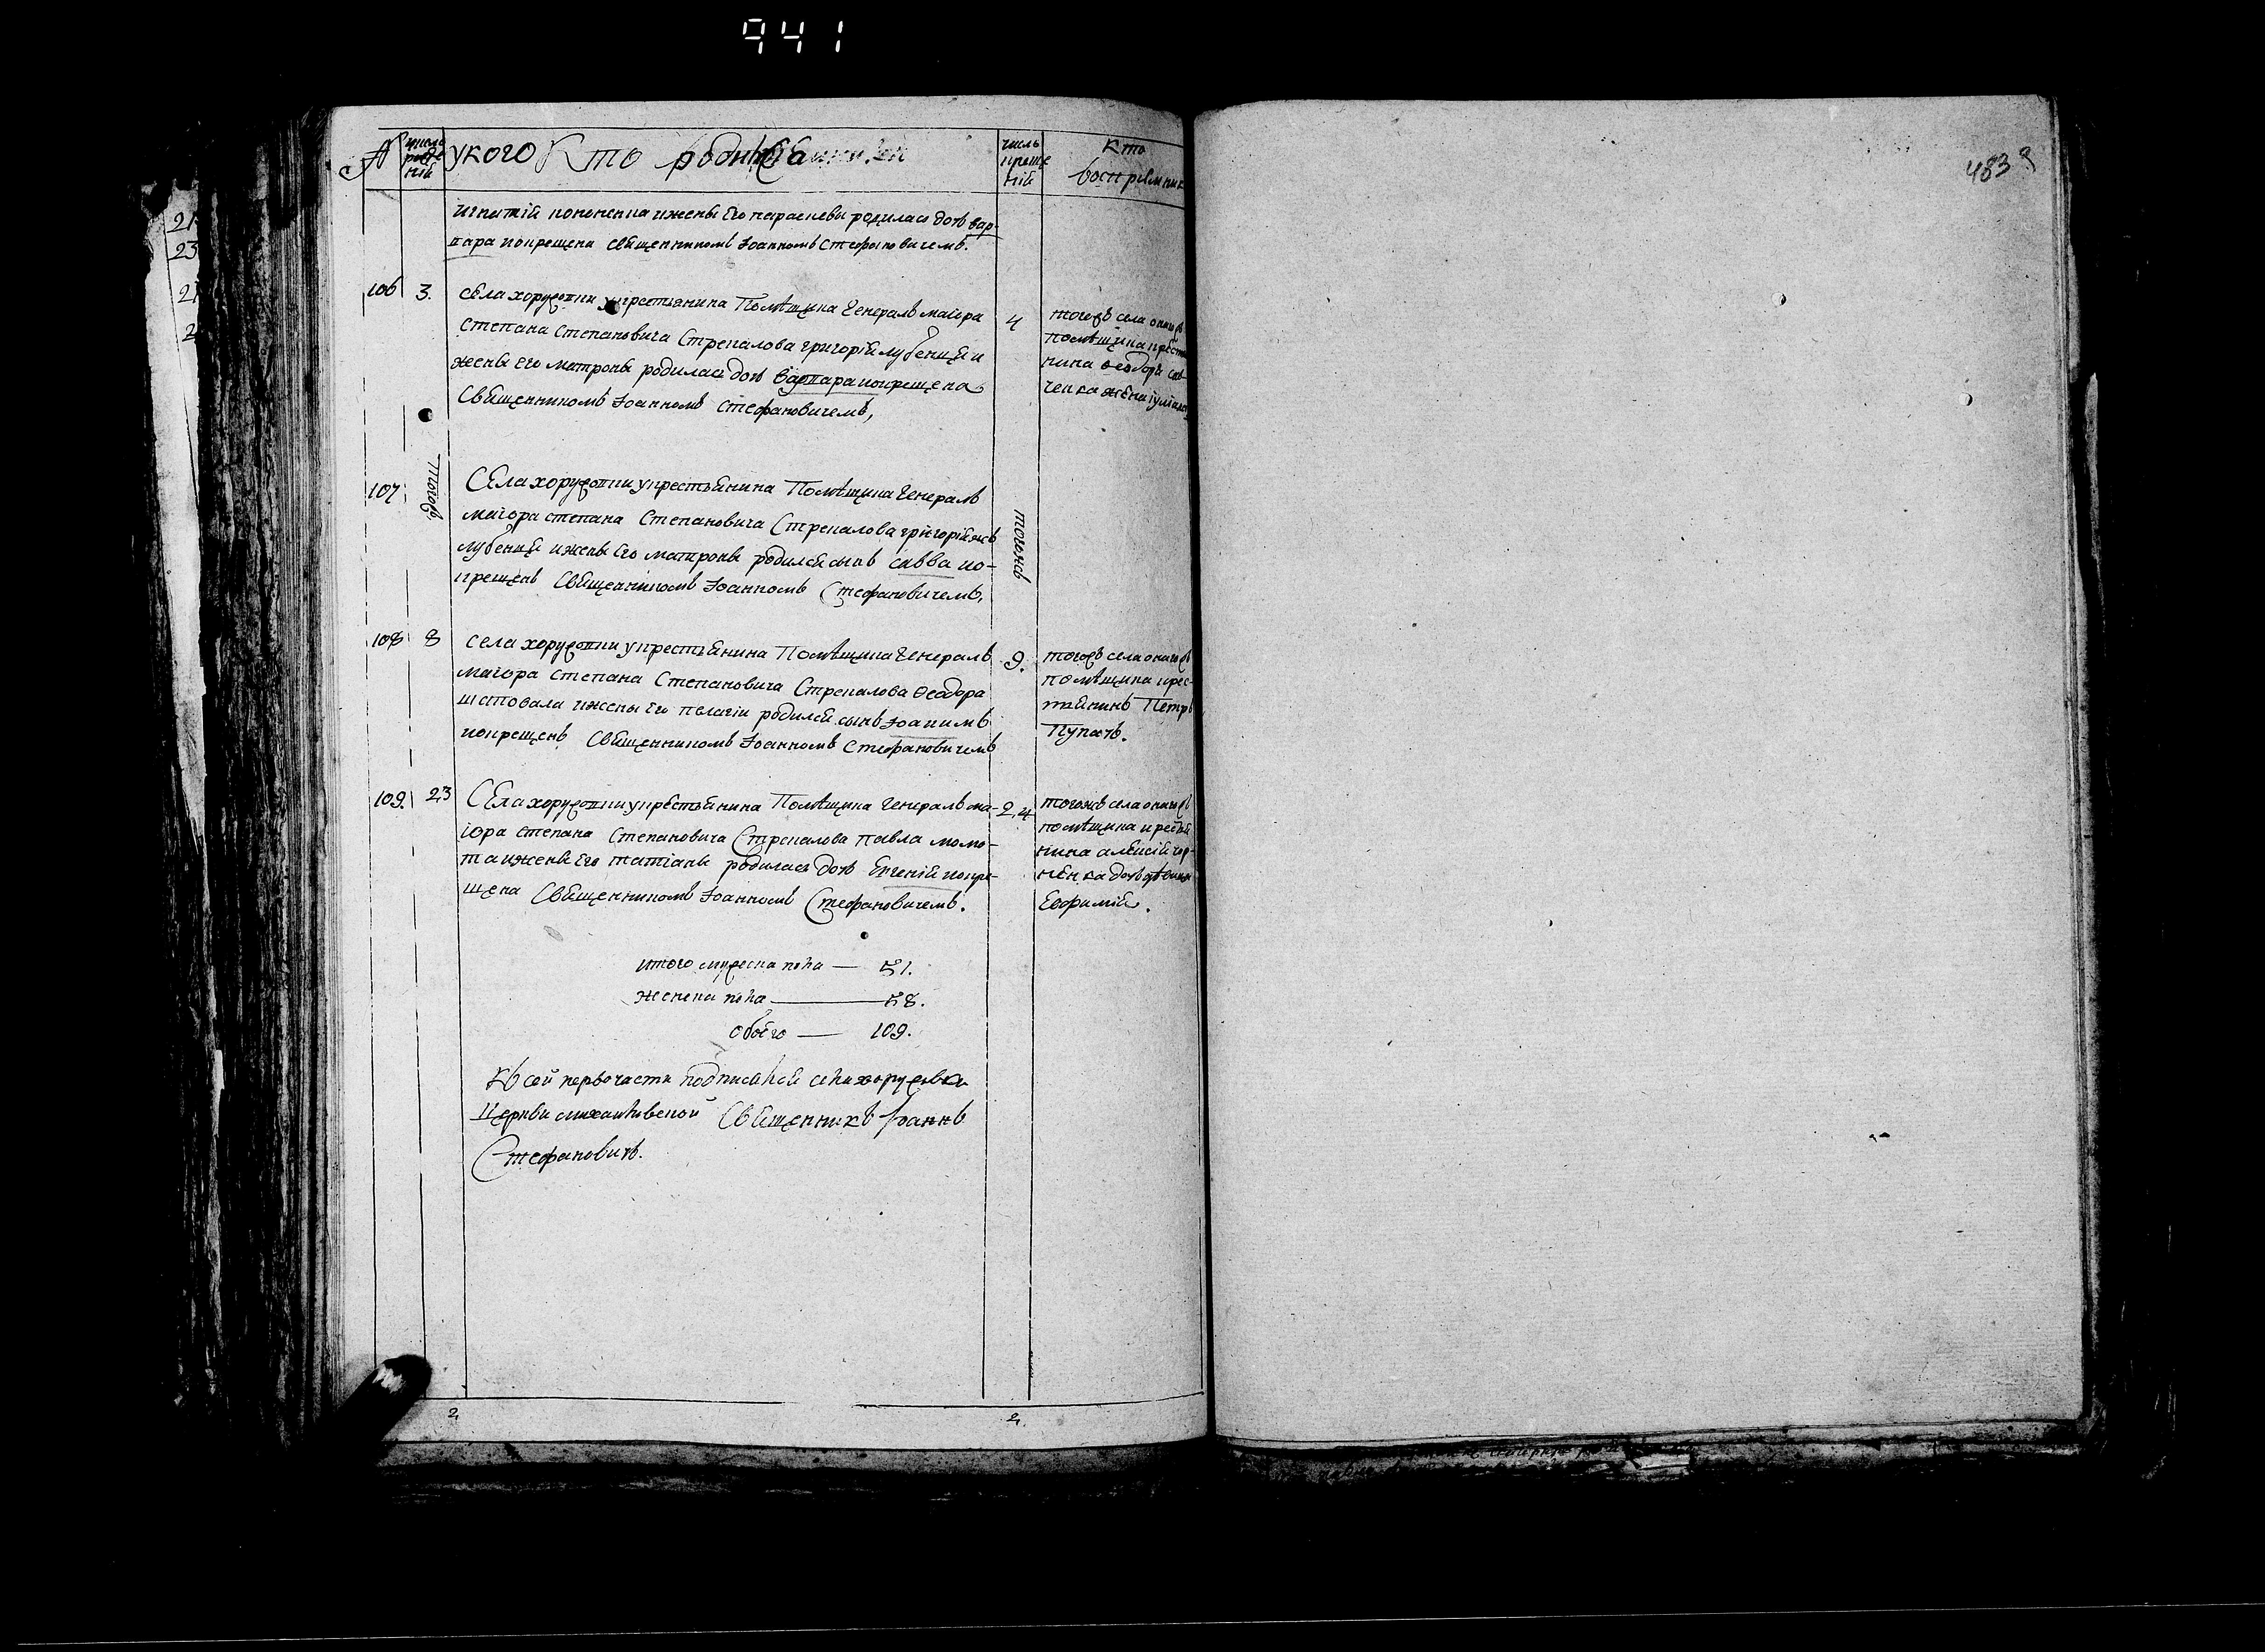 941
483
№
число рожде ній
у кого кто родился
число креще ній
Кто восприемник
Игнатій кононенка и жены Его параскевы родилась дочь вар-
вара и окрещена священникомъ Іоанномъ Стефановичемъ.
106 3. села хоружовки у крестьянина Помѣщика Генералъ маиора
Степана Степановича Стрекалова григорій лубенця и
жены Его матроны родилась дочь варвара и окрещена
Священникомъ Іоанномъ Стефановичемъ,
4 тогожъ села оного
помѣщика крестя
нина Феодора
ченка жена
107 тогож Села хоружовки у крестьянина Помѣщика Генералъ
маиора степана Степановича Стрекалова григорій жъ
лубенця и жены Его матроны родился сынъ савва ио-
крещенъ Священникомъ Іоанномъ Стефановичемъ,
тогожъ
108 8 села хоружовки у крестьянина Помѣщика Генералъ
маиора степана Степановича Стрекалова Феодора
шаповала и жены Его пелагіи родился сынъ Іоакимъ
иокрещенъ Священникомъ Іоанномъ Стефановичемъ
9. тогожъ села оного
помѣщика крес-
тянинъ Петръ
Пугачъ.
109. 23 Села хоружовки у крестьянина Помѣщика Генералъ ма-
іора степана Степановича Стрекалова павла момо-
та и жены Его татіаны родилась дочь Евгенія иокре-
щена Священникомъ Іоанномъ Стефановичемъ.
24 тогожъ села оного
помѣщика крестья
нина алексій чор-
ненка дочь
Евфимія.
итого мужеска пола — 51.
женска пола — 58.
обоего — 109.
Къ сей первочасти подписался села хоружовки
Церкви михайловской Священникъ Іоаннъ
Стефановичъ.
2 2